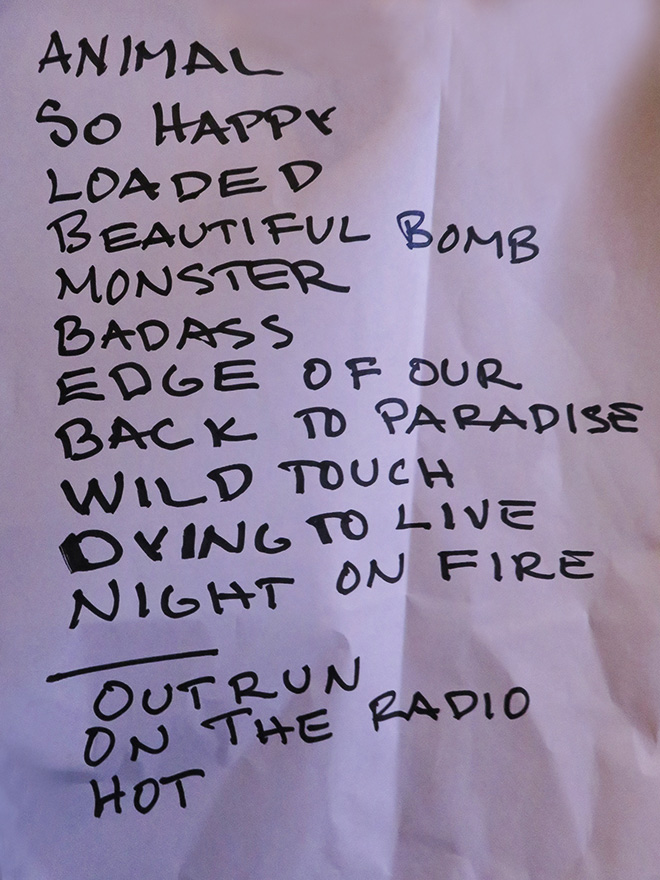 ANIMAL
SO HAPPY
LOADED
BEAUTIFUL BOMB
MONSTER
BADASS
EDGE OF OUR
BACK TO PARADISE
WILD TOUCH
DYING TO LIVE
NIGHT ON FIRE
OUTRUN
ON THE RADIO
HOT